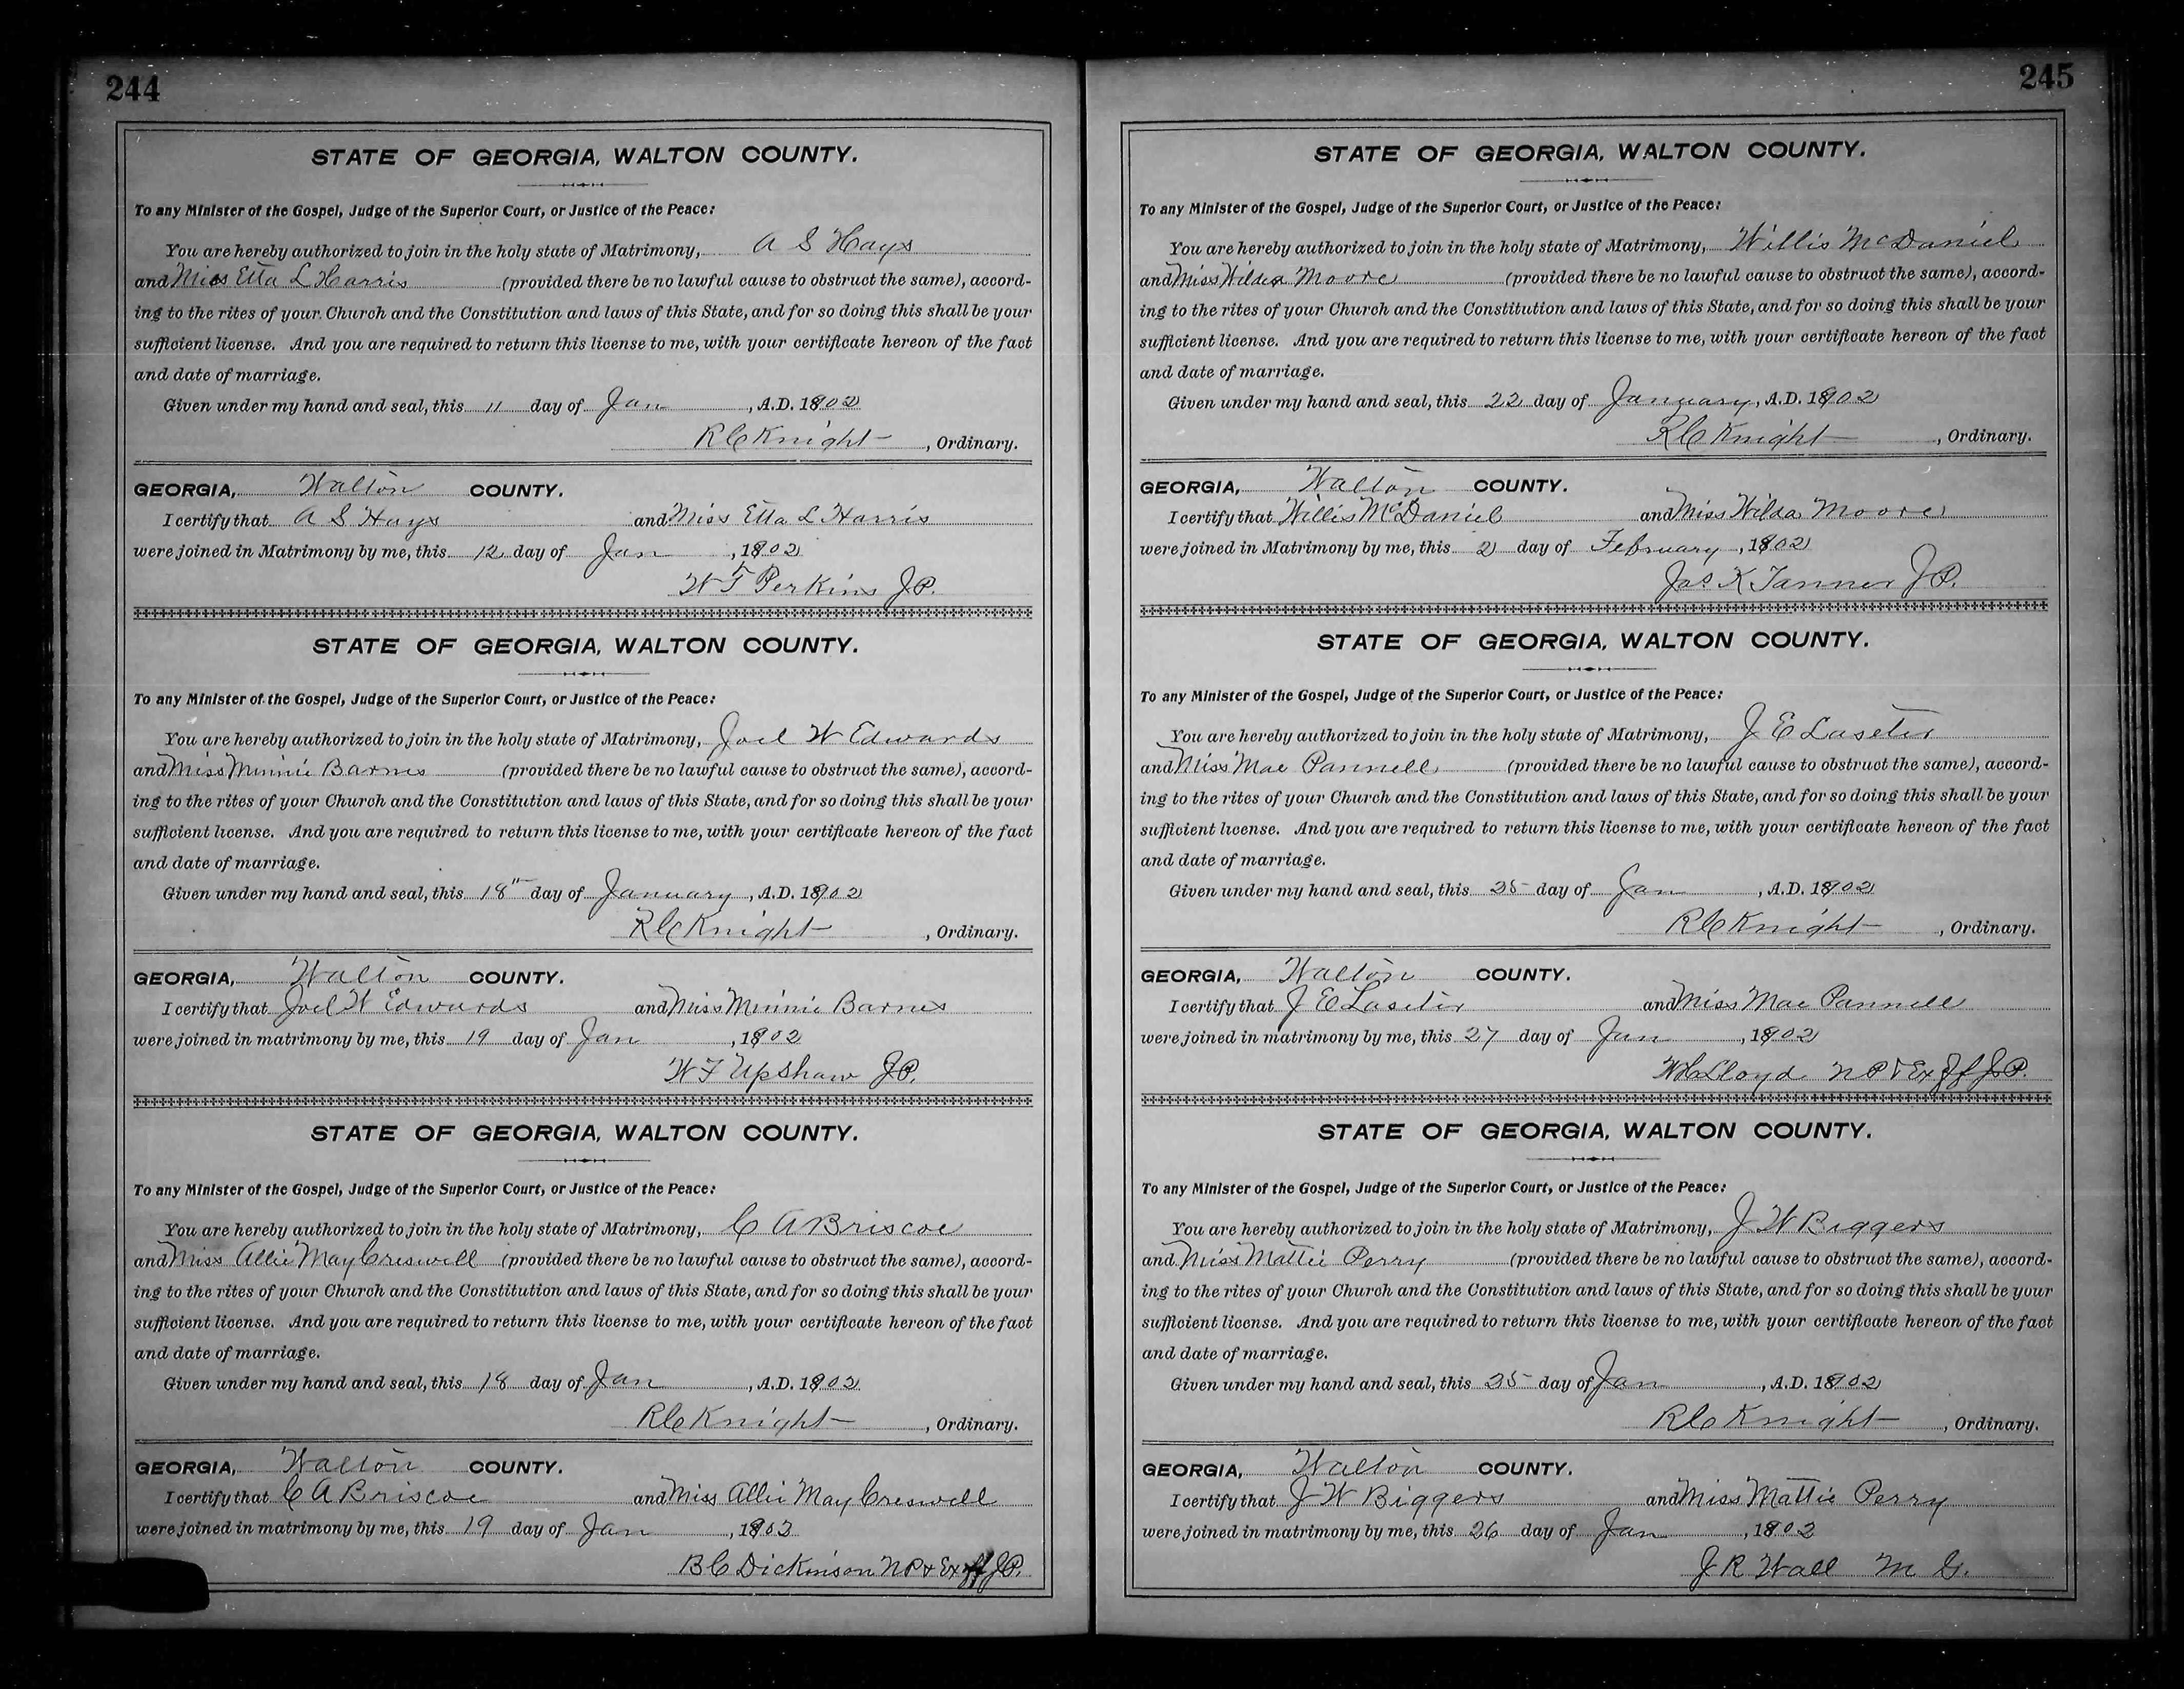 244
STATE OF GEORGIA, WALTON COUNTY.
To any Minister of the Gospel, Judge of the Superior Court, or Justice of the Peace:
You are hereby authorized to join in the holy state of Matrimony, A S Hays
and Miss Etta L Harris (provided there be no lawful cause to obstruct the same), accord-
ing to the rites of your Church and the Constitution and laws of this State, and for so doing this shall be your
sufficient license. And you are required to return this license to me, with your certificate hereon of the fact
and date of marriage.
Given under my hand and seal, this 11 day of Jan, A.D. 1902
R C Knight, Ordinary.
GEORGIA, Walton COUNTY.
I certify that A S Hays and Miss Etta L Harris
were joined in Matrimony by me, this 12 day of Jan, 1902
W T Perkins J.P.
STATE OF GEORGIA, WALTON COUNTY.
To any Minister of the Gospel, Judge of the Superior Court, or Justice of the Peace:
You are hereby authorized to join in the holy state of Matrimony, Joel W Edwards
and Miss Minnie Barnes (provided there be no lawful cause to obstruct the same), accord-
ing to the rites of your Church and the Constitution and laws of this State, and for so doing this shall be your
sufficient license. And you are required to return this license to me, with your certificate hereon of the fact
and date of marriage.
Given under my hand and seal, this 18" day of January, A.D. 1902
R C Knight, Ordinary.
GEORGIA, Walton COUNTY.
I certify that Joel W Edwards and Miss Minnie Barnes
were joined in matrimony by me, this 19 day of Jan, 1902
W F Upshaw J.P.
STATE OF GEORGIA, WALTON COUNTY.
To any Minister of the Gospel, Judge of the Superior Court, or Justice of the Peace:
You are hereby authorized to join in the holy state of Matrimony, C A Briscoe
and Miss Allie May Creswell (provided there be no lawful cause to obstruct the same), accord-
ing to the rites of your Church and the Constitution and laws of this State, and for so doing this shall be your
sufficient license. And you are required to return this license to me, with your certificate hereon of the fact
and date of marriage.
Given under my hand and seal, this 18 day of Jan, A.D. 1902
R C Knight, Ordinary.
GEORGIA, Walton COUNTY.
I certify that C A Briscoe and Miss Allie May Creswell
were joined in matrimony by me, this 19 day of Jan, 1902
B C Dickinson N P & Ex off J.P.
245
STATE OF GEORGIA, WALTON COUNTY.
To any Minister of the Gospel, Judge of the Superior Court, or Justice of the Peace:
You are hereby authorized to join in the holy state of Matrimony, Willis McDaniel
and Miss Wilda Moore (provided there be no lawful cause to obstruct the same), accord-
ing to the rites of your Church and the Constitution and laws of this State, and for so doing this shall be your
sufficient license. And you are required to return this license to me, with your certificate hereon of the fact
and date of marriage.
Given under my hand and seal, this 22 day of January, A.D. 1902
R C Knight, Ordinary.
GEORGIA, Walton COUNTY.
I certify that Willis McDaniel and Miss Wilda Moore
were joined in Matrimony by me, this 2 day of February, 1902
Jas K Tanner J.P.
STATE OF GEORGIA, WALTON COUNTY.
To any Minister of the Gospel, Judge of the Superior Court, or Justice of the Peace:
You are hereby authorized to join in the holy state of Matrimony, J E Laseter
and Miss Mae Pannell (provided there be no lawful cause to obstruct the same), accord-
ing to the rites of your Church and the Constitution and laws of this State, and for so doing this shall be your
sufficient license. And you are required to return this license to me, with your certificate hereon of the fact
and date of marriage.
Given under my hand and seal, this 25 day of Jan, A.D. 1902
R C Knight, Ordinary.
GEORGIA, Walton COUNTY.
I certify that J E Laseter and Miss Mae Pannell
were joined in matrimony by me, this 27 day of Jan, 1902
Lloyd N P & Ex off J.P.
STATE OF GEORGIA, WALTON COUNTY.
To any Minister of the Gospel, Judge of the Superior Court, or Justice of the Peace:
You are hereby authorized to join in the holy state of Matrimony, J W Biggers
and Miss Mattie Perry (provided there be no lawful cause to obstruct the same), accord-
ing to the rites of your Church and the Constitution and laws of this State, and for so doing this shall be your
sufficient license. And you are required to return this license to me, with your certificate hereon of the fact
and date of marriage.
Given under my hand and seal, this 25 day of Jan, A.D. 1902
R C Knight, Ordinary.
GEORGIA, Walton COUNTY.
I certify that J W Biggers and Miss Mattie Perry
were joined in matrimony by me, this 26 day of Jan, 1902
J R Wall M G.